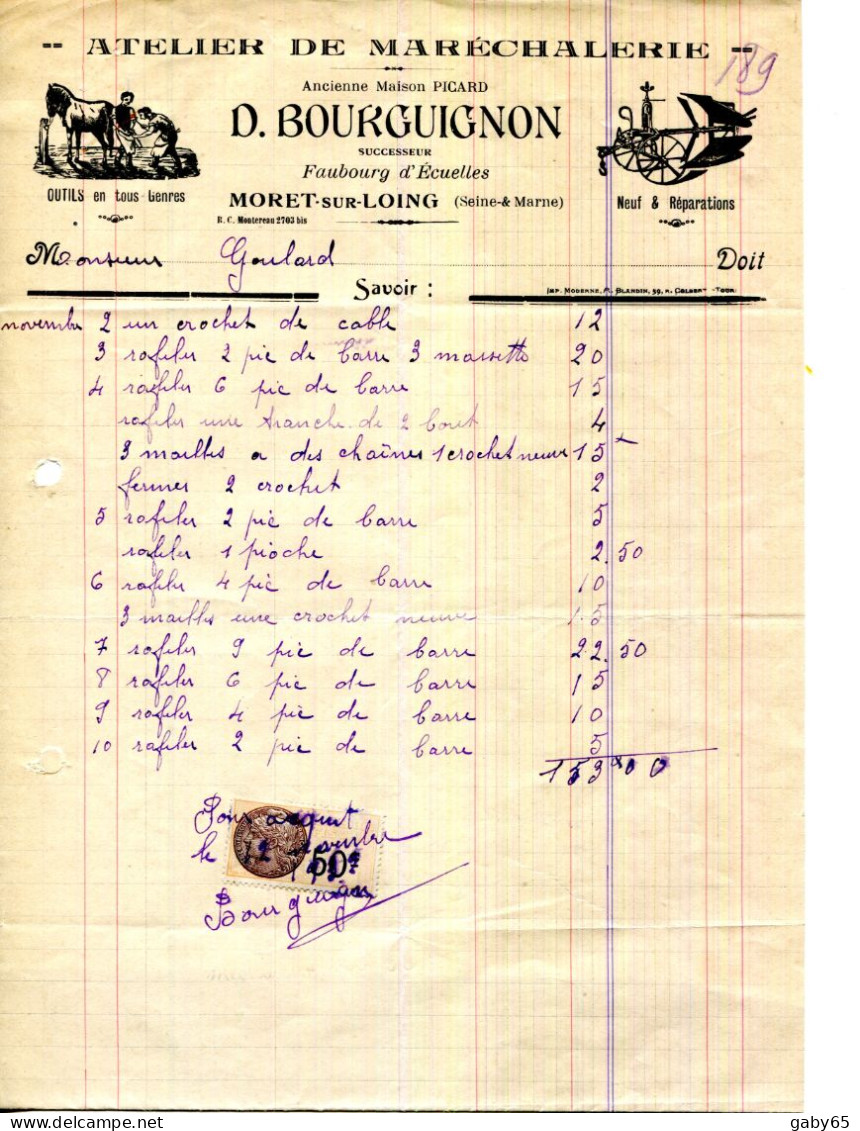 -- ATELIER DE MARÉCHALERIE --
189
Ancienne Maison PICARD
D. BOURGUIGNON
SUCCESSEUR
Faubourg d'Écuelles
MORET-SUR-LOING (Seine-& Marne)
R. C. Montereau 2703 bis
OUTILS en tous Genres
Neuf & Réparations
Monsieur Goulard Doit
Savoir :
IMP. MODERNE, 59, R. COLBERT
novembre 2 un crochet de cable 12
3 rafiler 2 pic de barre 3 massette 20
4 rafiler 6 pic de barre 15
rafiler une tranche de 2 bout 4
3 mailles a des chaînes 1 crochet neuve 15
fermer 2 crochet 2
5 rafiler 2 pic de barre 5
rafiler 1 pioche 2.50
6 rafiler 4 pic de barre 10
3 mailles une crochet neuve 15
7 rafiler 9 pic de barre 22.50
8 rafiler 6 pic de barre 15
9 rafiler 4 pic de barre 10
10 rafiler 2 pic de barre 5
153 00
Pour acquit
le 12 novembre
50c
Bourguignon
delcampe.net
gaby65